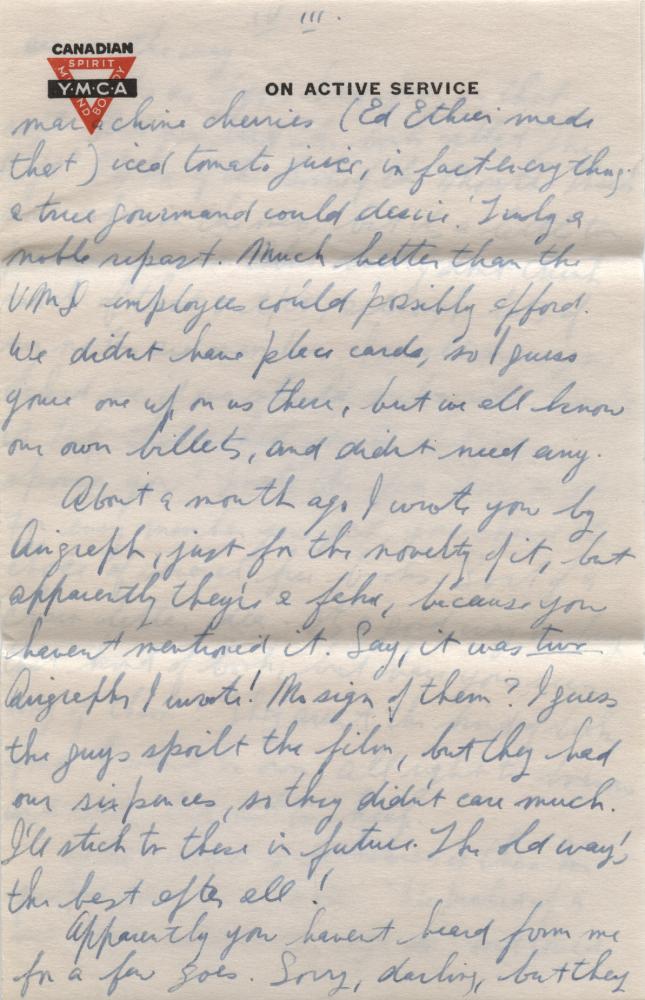 III.
CANADIAN
SPIRIT
MIND
Y·M·C·A
BODY
ON ACTIVE SERVICE
marachine cherries (Ed Ethier made
that) iced tomato juice, in fact everything
a true gourmand could desire! Truly a
noble repast. Much better than the
employees could possibly afford.
We didnt have place cards, so I guess
youre one up on us there, but we all know
our own billets, and didnt need any.
About a month ago I wrote you by
Airgraph, just for the novelty of it, but
apparently they're a fake, because you
havent mentioned it. Say, it was two
Airgraphs I wrote! No sign of them? I guess
the guys spoilt the film, but they had
our sixpences, so they didn't care much.
I'll stick to these in future. The old way's
the best after all!
Apparently you havent heard form me
for a few goes. Sorry, darling, but they